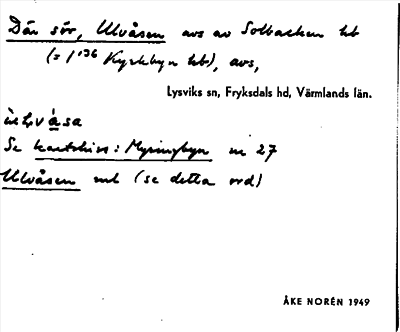 Där sör, Ulvåsen avs av Solbacken hb
(= 1¹³⁶ Kyrkbyn hb), avs,
Lysviks sn, Fryksdals hd, Värmlands län.
Se kartskiss: Myringbyn nr 27
Ulvåsen mb (se detta ord)
ÅKE NORÉN 1949